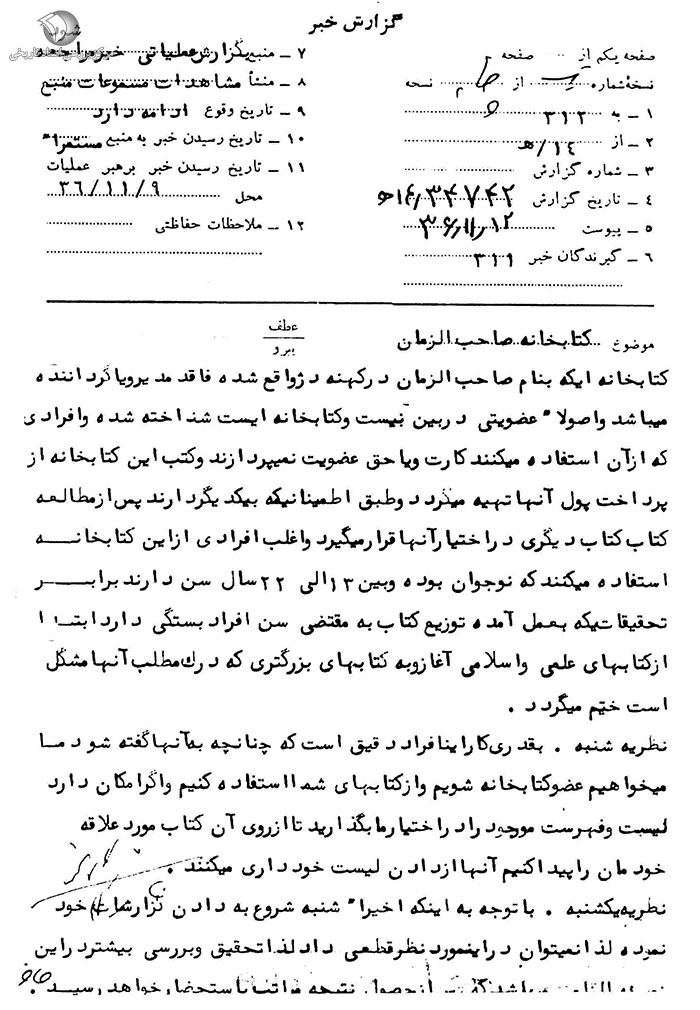 گزارش خبر
صفحه یکم از ... صفحه
نسخه شماره ... از ... نسخه
۱ ـ به ۳۱۲
۲ ـ از ۱۴/هـ
۳ ـ شماره گزارش
۴ ـ تاریخ گزارش ۱۴/۳۴۷۴۲هـ
۵ ـ پیوست ۳۶/۱۱/۱۲
۶ ـ گیرندگان خبر ۳۱۱
۷ ـ منبع گزارش عملیاتی
۸ ـ منشأ مشاهدات مسموعات منبع
۹ ـ تاریخ وقوع ادامه دارد
۱۰ ـ تاریخ رسیدن خبر به منبع مستمراً
۱۱ ـ تاریخ رسیدن خبر برهبر عملیات
محل ۳۶/۱۱/۹
۱۲ ـ ملاحظات حفاظتی
موضوع کتابخانه صاحب الزمان
عطف
پیرو
کتابخانه ایکه بنام صاحب الزمان در کهنه دژ واقع شده فاقد مدیر ویا گرداننده
میباشد واصولاً عضویتی دربین نیست وکتابخانه ایست شناخته شده وافرادی
که ازآن استفاده میکنند کارت ویا حق عضویت نمیپردازند وکتب این کتابخانه از
پرداخت پول آنها تهیه میگردد وطبق اطمینانیکه بیکدیگر دارند پس از مطالعه
کتاب کتاب دیگری دراختیار آنها قرار میگیرد واغلب افرادی ازاین کتابخانه
استفاده میکنند که نوجوان بوده وبین ۱۳ الی ۲۲ سال سن دارند برابر
تحقیقاتیکه بعمل آمده توزیع کتاب به مقتضی سن افراد بستگی دارد ابتدا
ازکتابهای علمی واسلامی آغاز وبه کتابهای بزرگتری که درك مطلب آنها مشکل
است ختم میگردد .
نظریه شنبه . بقدری کار اینافراد دقیق است که چنانچه به آنها گفته شود ما
میخواهیم عضو کتابخانه شویم وازکتابهای شما استفاده کنیم واگر امکان دارد
لیست وفهرست موجود را در اختیار ما بگذارید تا ازروی آن کتاب مورد علاقه
خودمان را پیدا کنیم آنها ازدادن لیست خودداری میکنند .
نظریه یکشنبه . باتوجه به اینکه اخیراً شنبه شروع به دادن گزارشات خود
نموده لذا نمیتوان دراینمورد نظرقطعی داد لذا تحقیق وبررسی بیشتر دراین
میباشد که پس ازحصول نتیجه مراتب باستحضار خواهد رسید .